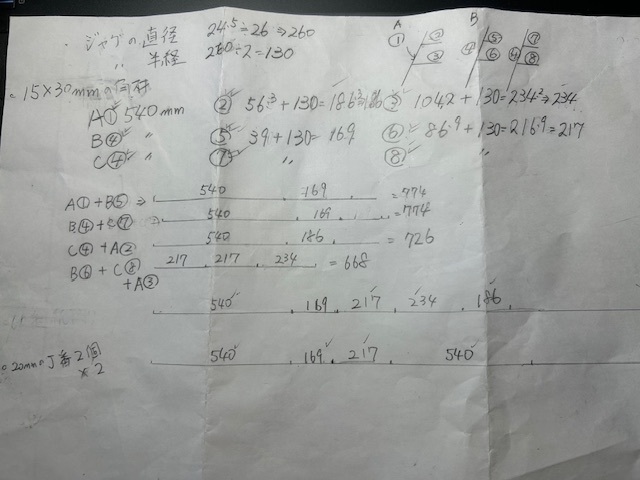 ・ジャケの直径 24.5≒26⇒260
〃 半径 260÷2=130
A B
① ② ③ ④ ⑤ ⑥ ④ ⑦ ⑧
。15×30mmの角材
A① 540mm ② 56.3+130=186.3≒186 ③ 104.2+130=234.2⇒234
B④ 〃 ⑤ 39+130=169 ⑥ 86.9+130=216.9=217
C④ 〃 ⑦ 〃 ⑧ 〃
A①+B⑤ ⇒ 540 169 =774
B④+C⑦ ⇒ 540 169 =774
C④+A② 540 186 =726
B⑥+C⑧ 217 217 234 =668
+A③
540 169 217 234 186
。20mmの丁番2個 540 169 217 540
×2